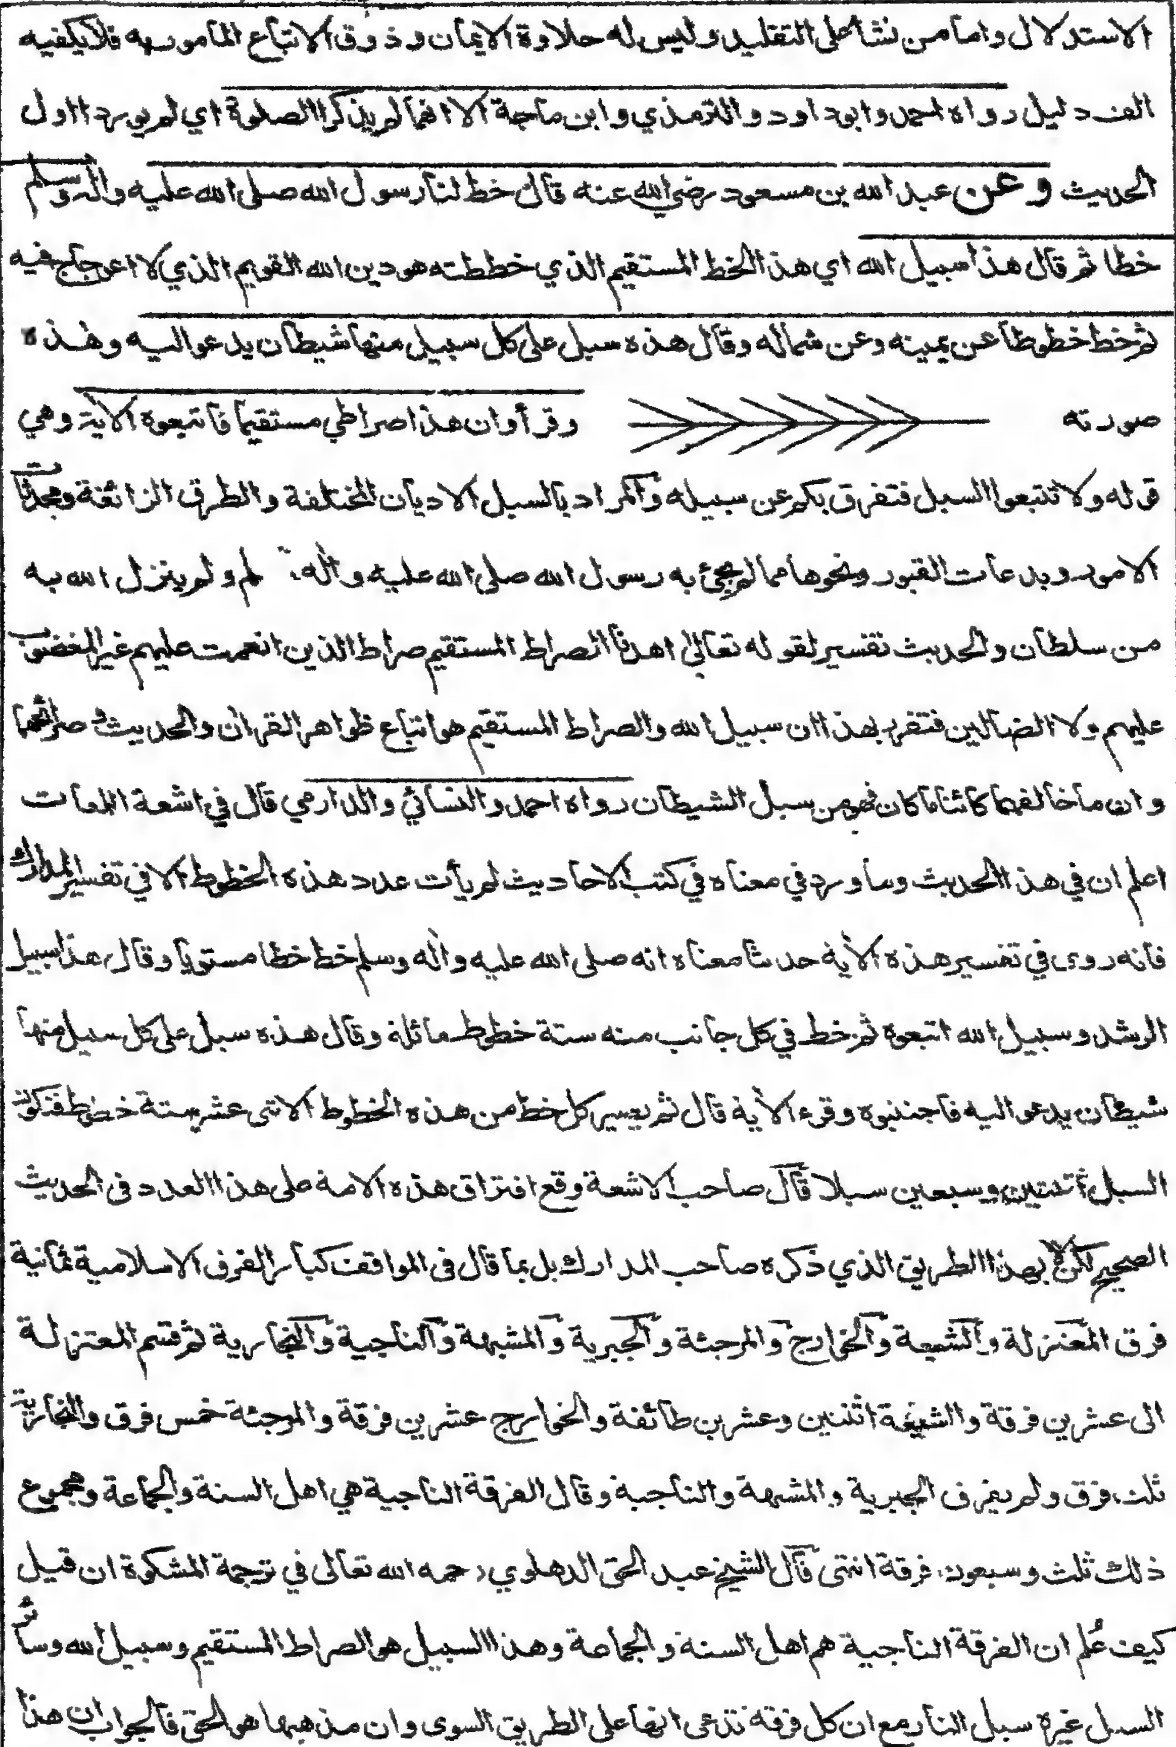 الاستدلال واما من نشأ على التقليد وليس له حلاوة الايمان وذوق الاتباع المأمور به فلا يكفيه
الف دليل رواه احمد وابو داود والترمذي وابن ماجة الا انهما لم يذكرا الصلوة اي لم يورد اول
الحديث وعن عبد الله بن مسعود رضي الله عنه قال خط لنا رسول الله صلى الله عليه واله وسلم
خطا ثم قال هذا سبيل الله اي هذا الخط المستقيم الذي خططته هو دين الله القويم الذي لا اعوجاج فيه
ثم خط خطوطا عن يمينه وعن شماله وقال هذه سبل على كل سبيل منها شيطان يدعو اليه وهذه
صورته وقرأ وان هذا صراطي مستقيما فاتبعوه الآية وهي
قوله ولا تتبعوا السبل فتفرق بكم عن سبيله والمراد بالسبل الاديان المختلفة والطرق الزائغة ومحدثات
الامور وبدعات القبور ونحوها مما لم يجئ به رسول الله صلى الله عليه واله لم ولم ينزل الله به
من سلطان والحديث تفسير لقوله تعالى اهدنا الصراط المستقيم صراط الذين انعمت عليهم غير المغضوب
عليهم ولا الضالين فتقرر بهذا ان سبيل الله والصراط المستقيم هو اتباع ظواهر القران والحديث وصرائحهما
وان ما خالفهما كائنا ما كان فهو من سبل الشيطان رواه احمد والنسائي والدارمي قال في اشعة اللمعات
اعلم ان في هذا الحديث وما ورد في معناه في كتب الاحاديث لم يأت عدد هذه الخطوط الا في تفسير المدارك
فانه روى في تفسير هذه الآية حدثا معناه انه صلى الله عليه واله وسلم خط خطا مستويا وقال هذا سبيل
الرشد وسبيل الله اتبعوه ثم خط في كل جانب منه ستة خطوط مائلة وقال هذه سبل على كل سبيل منها
شيطان يدعو اليه فاجتنبوه وقرء الآية قال ثم يصير كل خط من هذه الخطوط الاثنى عشر ستة خطوط فتكون
السبل اثنتين وسبعين سبيلا قال صاحب الاشعة وقع افتراق هذه الامة على هذا العدد فى الحديث
الصحيح لكن لا بهذا الطريق الذي ذكره صاحب المدارك بل بما قال فى المواقف كبار الفرق الاسلامية ثمانية
فرق المعتزلة والشيعة والخوارج والمرجئة والجبرية والمشبهة والناجية والنجارية ثم قسم المعتزلة
الى عشرين فرقة والشيعة اثنتين وعشرين طائفة والخوارج عشرين فرقة والمرجئة خمس فرق والنجارية
ثلث فرق ولم يفرق الجبرية والمشبهة والناجية وقال الفرقة الناجية هي اهل السنة والجماعة ومجموع
ذلك ثلث وسبعون فرقة انتهى قال الشيخ عبد الحق الدهلوي رحمه الله تعالى في ترجمة المشكوة ان قيل
كيف علم ان الفرقة الناجية هم اهل السنة والجماعة وهذا السبيل هو الصراط المستقيم وسبيل الله وسائر
السبل غيره سبل النار مع ان كل فرقة تدعى انها على الطريق السوى وان مذهبها هو الحق فالجواب ان هذا